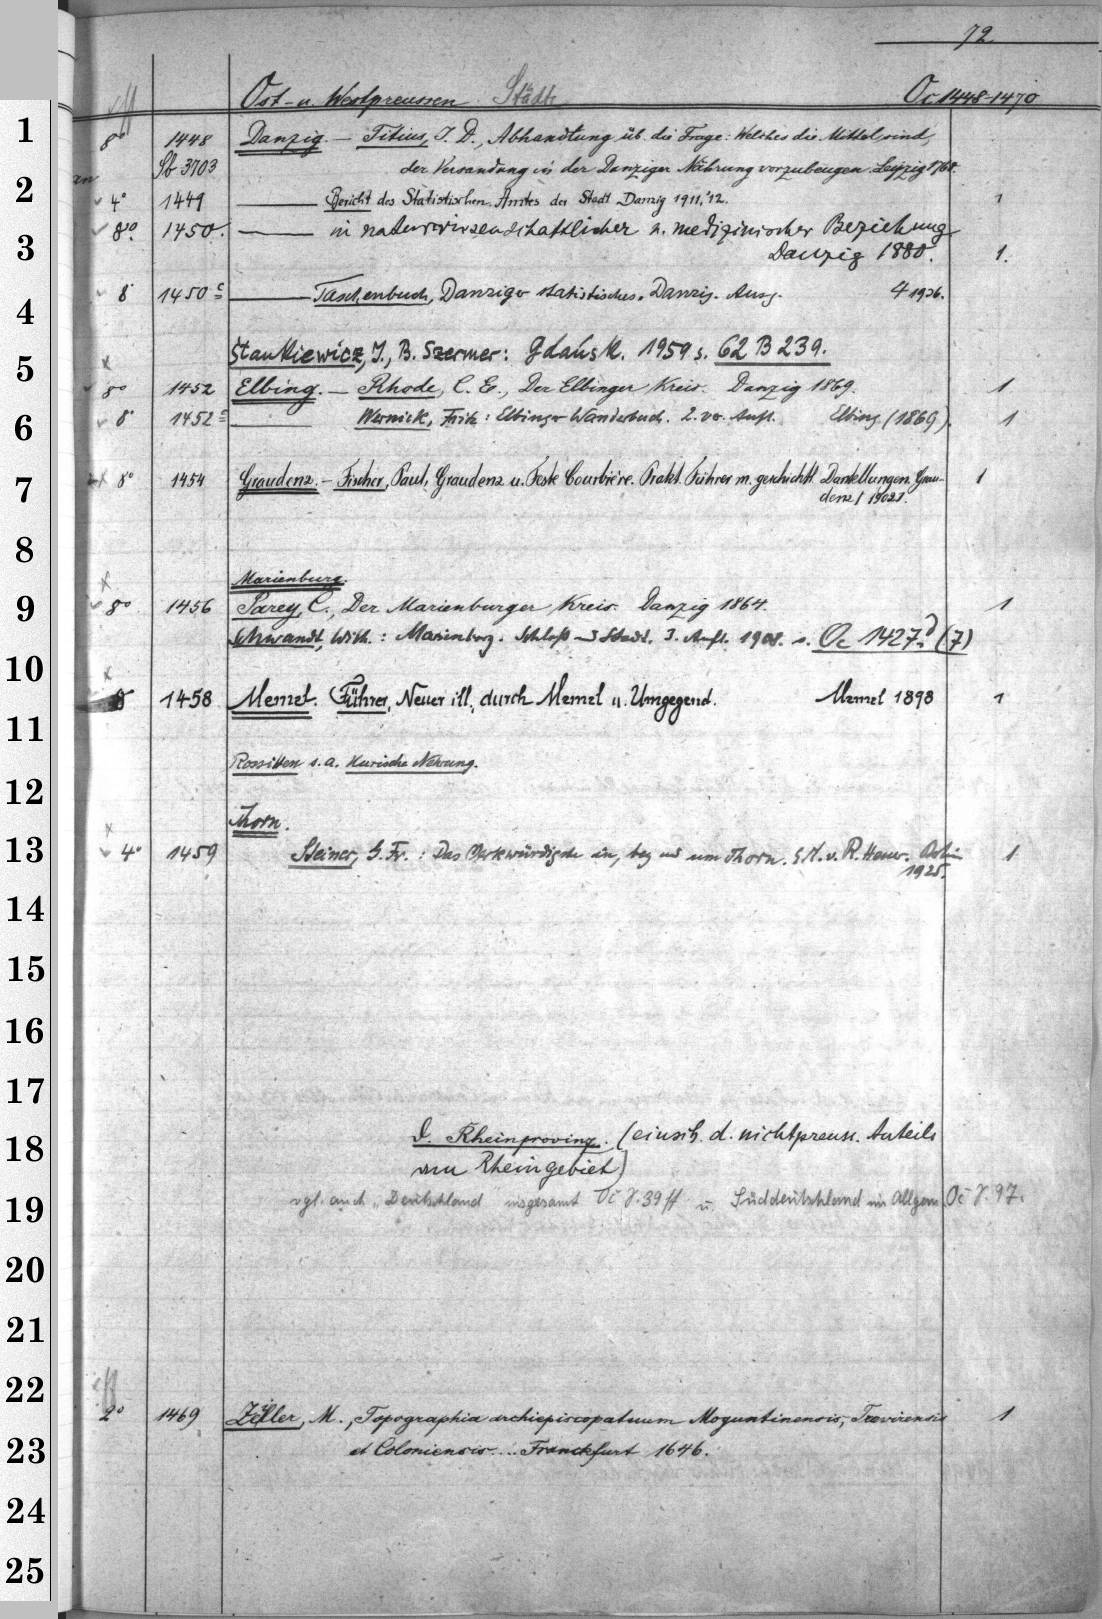 72
Ost- u. Westpreussen Städte Oc 1448-1470
1 8° 1448 Danzig. — Titius, J. D., Abhandlung üb. die Frage: Welches die Mittel sind,
Sb 3703 der Versandung in der Danziger Nährung vorzubeugen. Leipzig 1768.
2 4° 1449 Bericht des Statistischen Amtes der Stadt Danzig 1911,'12. 1
3 8vo. 1450. in naturwissenschaftlicher u. medizinischer Beziehung
Danzig 1880. 1.
4 8° 1450 c Taschenbuch, Danziger statistisches. Danzig. Ausg. 4 1926.
5 Stankiewicz, J., B. Szermer: Gdańsk. 1959 s. 62 B 239.
8° 1452 Elbing. — Rhode, C. E., Der Elbinger Kreis. Danzig 1869. 1
6 8° 1452 Wernick, Fritz: Elbinger Wanderbuch. 2. ver. Aufl. Elbing (1869). 1
7 8° 1454 Graudenz. — Fischer, Paul, Graudenz u. Feste Courbière. Prakt. Führer m. geschichtl. Darstellungen. Grau-
denz [1902]. 1
8
Marienburg.
9 8° 1456 Parey, C., Der Marienburger Kreis. Danzig 1864. 1
Schwandt, Wilh.: Marienburg. Schloß und Stadt. 3. Aufl. 1908. s. Oc 1427 (7)
10
8 1458 Memel. Führer, Neuer ill., durch Memel u. Umgegend. Memel 1898 1
11
Rossitten s. a. Kurische Nehrung.
12
Thorn.
13 4° 1459 Steiner, G. Fr.: Das Merkwürdigste in, bey und um Thorn. v. R. Heuer. 1
1925.
14
15
16
17
18 d. Rheinprovinz. (einschl. d. nichtpreuss. Anteils
am Rheingebiet)
19 vgl. auch "Deutschland" insgesamt Oc 8. 39 ff u. Süddeutschland im Allgem. Oc 8. 97.
20
21
22
2° 1469 Zeiller, M., Topographia archiepiscopatuum Moguntinensis, Trevirensis 1
23 et Coloniensis... Franckfurt 1646.
24
25